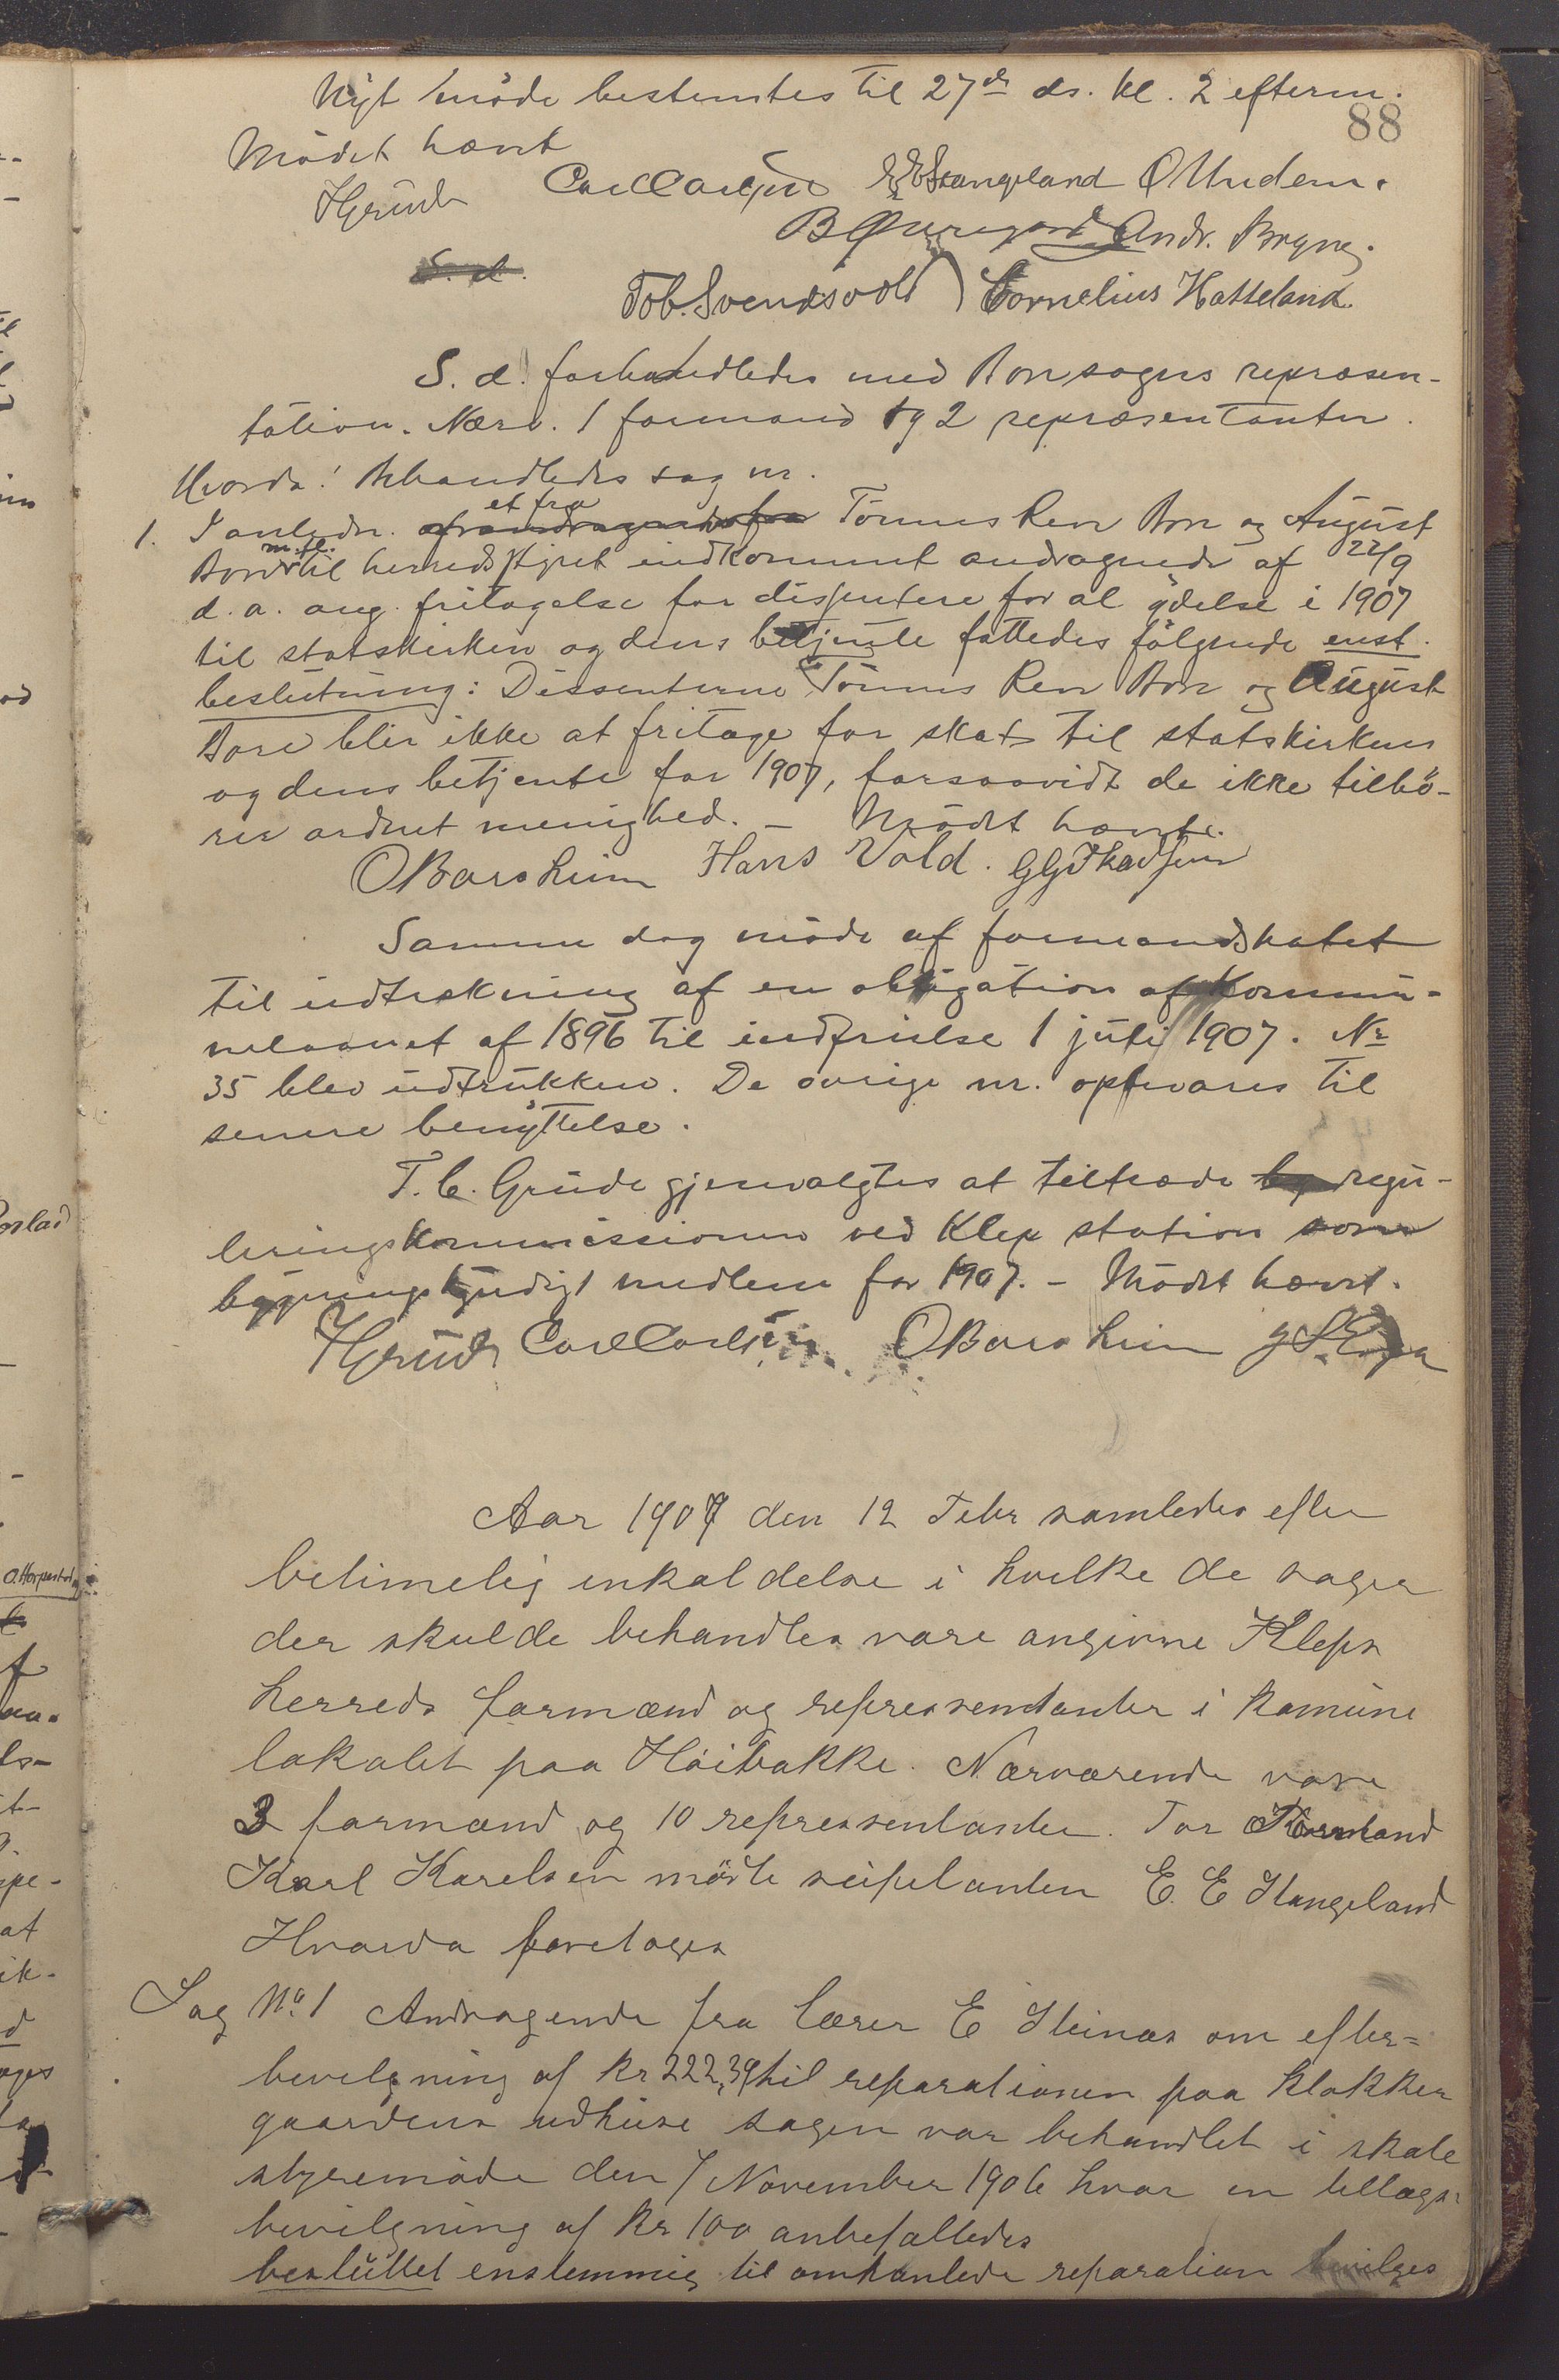 Nyt møde bestemtes til 27de ds. kl. 2 efterm.
88
Mødet hævet
TGrude Carl Carlsen E E Stangeland O Undem.
B Øvregaard Andr. Bryne.
S. d.
Tob. Svendsvoll Cornelius Hatteland.
S. d. forhandledes med Bore sogns repræsen-
tation. Nærv. 1 formand og 2 repræsentanter.
Hvorda: Behandledes sag nr.
1. I anledn. et fra Tønnes Reve Bore og August
Bore m. fl. til herredsstyret indkommet andragende af 22/9
d. a. ang. fritagelse for dissentere for al ydelse i 1907
til statskirken og dens betjente fattedes følgende enst.
beslutning: Dissenterne Tønnes Reve Bore og August
Bore blir ikke at fritage for skat til statskirken
og dens betjente for 1907, forsaavidt de ikke tilhø-
rer ordnet menighed. – Mødet hævet.
O Borsheim Hans Vold.
Samme dag møde af formandskabet
til udtrekning af en obligation af kommu-
nelaanet af 1896 til indfrielse 1 juli 1907. Nr
35 blev udtrukken. De øvrige nr. opbevares til
senere benyttelse.
T. C. Grude gjenvalgtes at tiltræde regu-
leringskommissionen ved Klep station som
bygningskyndigt medlem for 1907. – Mødet hævet.
TGrude Carl Carlsen O Borsheim
Aar 1907 den 12 Febr samledes efter
betimelig inkaldelse i hvilke de sager
der skulde behandles vare angivne Kleps
herreds formænd og repressentanter i komune
lokalet paa Høibakke. Nærværende vare
3 formænd og 10 repressentanter. For Formand
Karl Karelsen mødte suplanten E. E Stangeland
Hvorda foretoges
Sag No 1 Andragende fra lærer E Steinnes om efter=
bevilgning af kr 222,39 til reparationen paa klokker
gaardens udhuse sagen var behandlet i skole
styremøde den 7 November 1906 hvor en tillægs-
bevilgning af kr 100 anbefalledes
besluttet enstemmig til omhanlede reparation bevilges